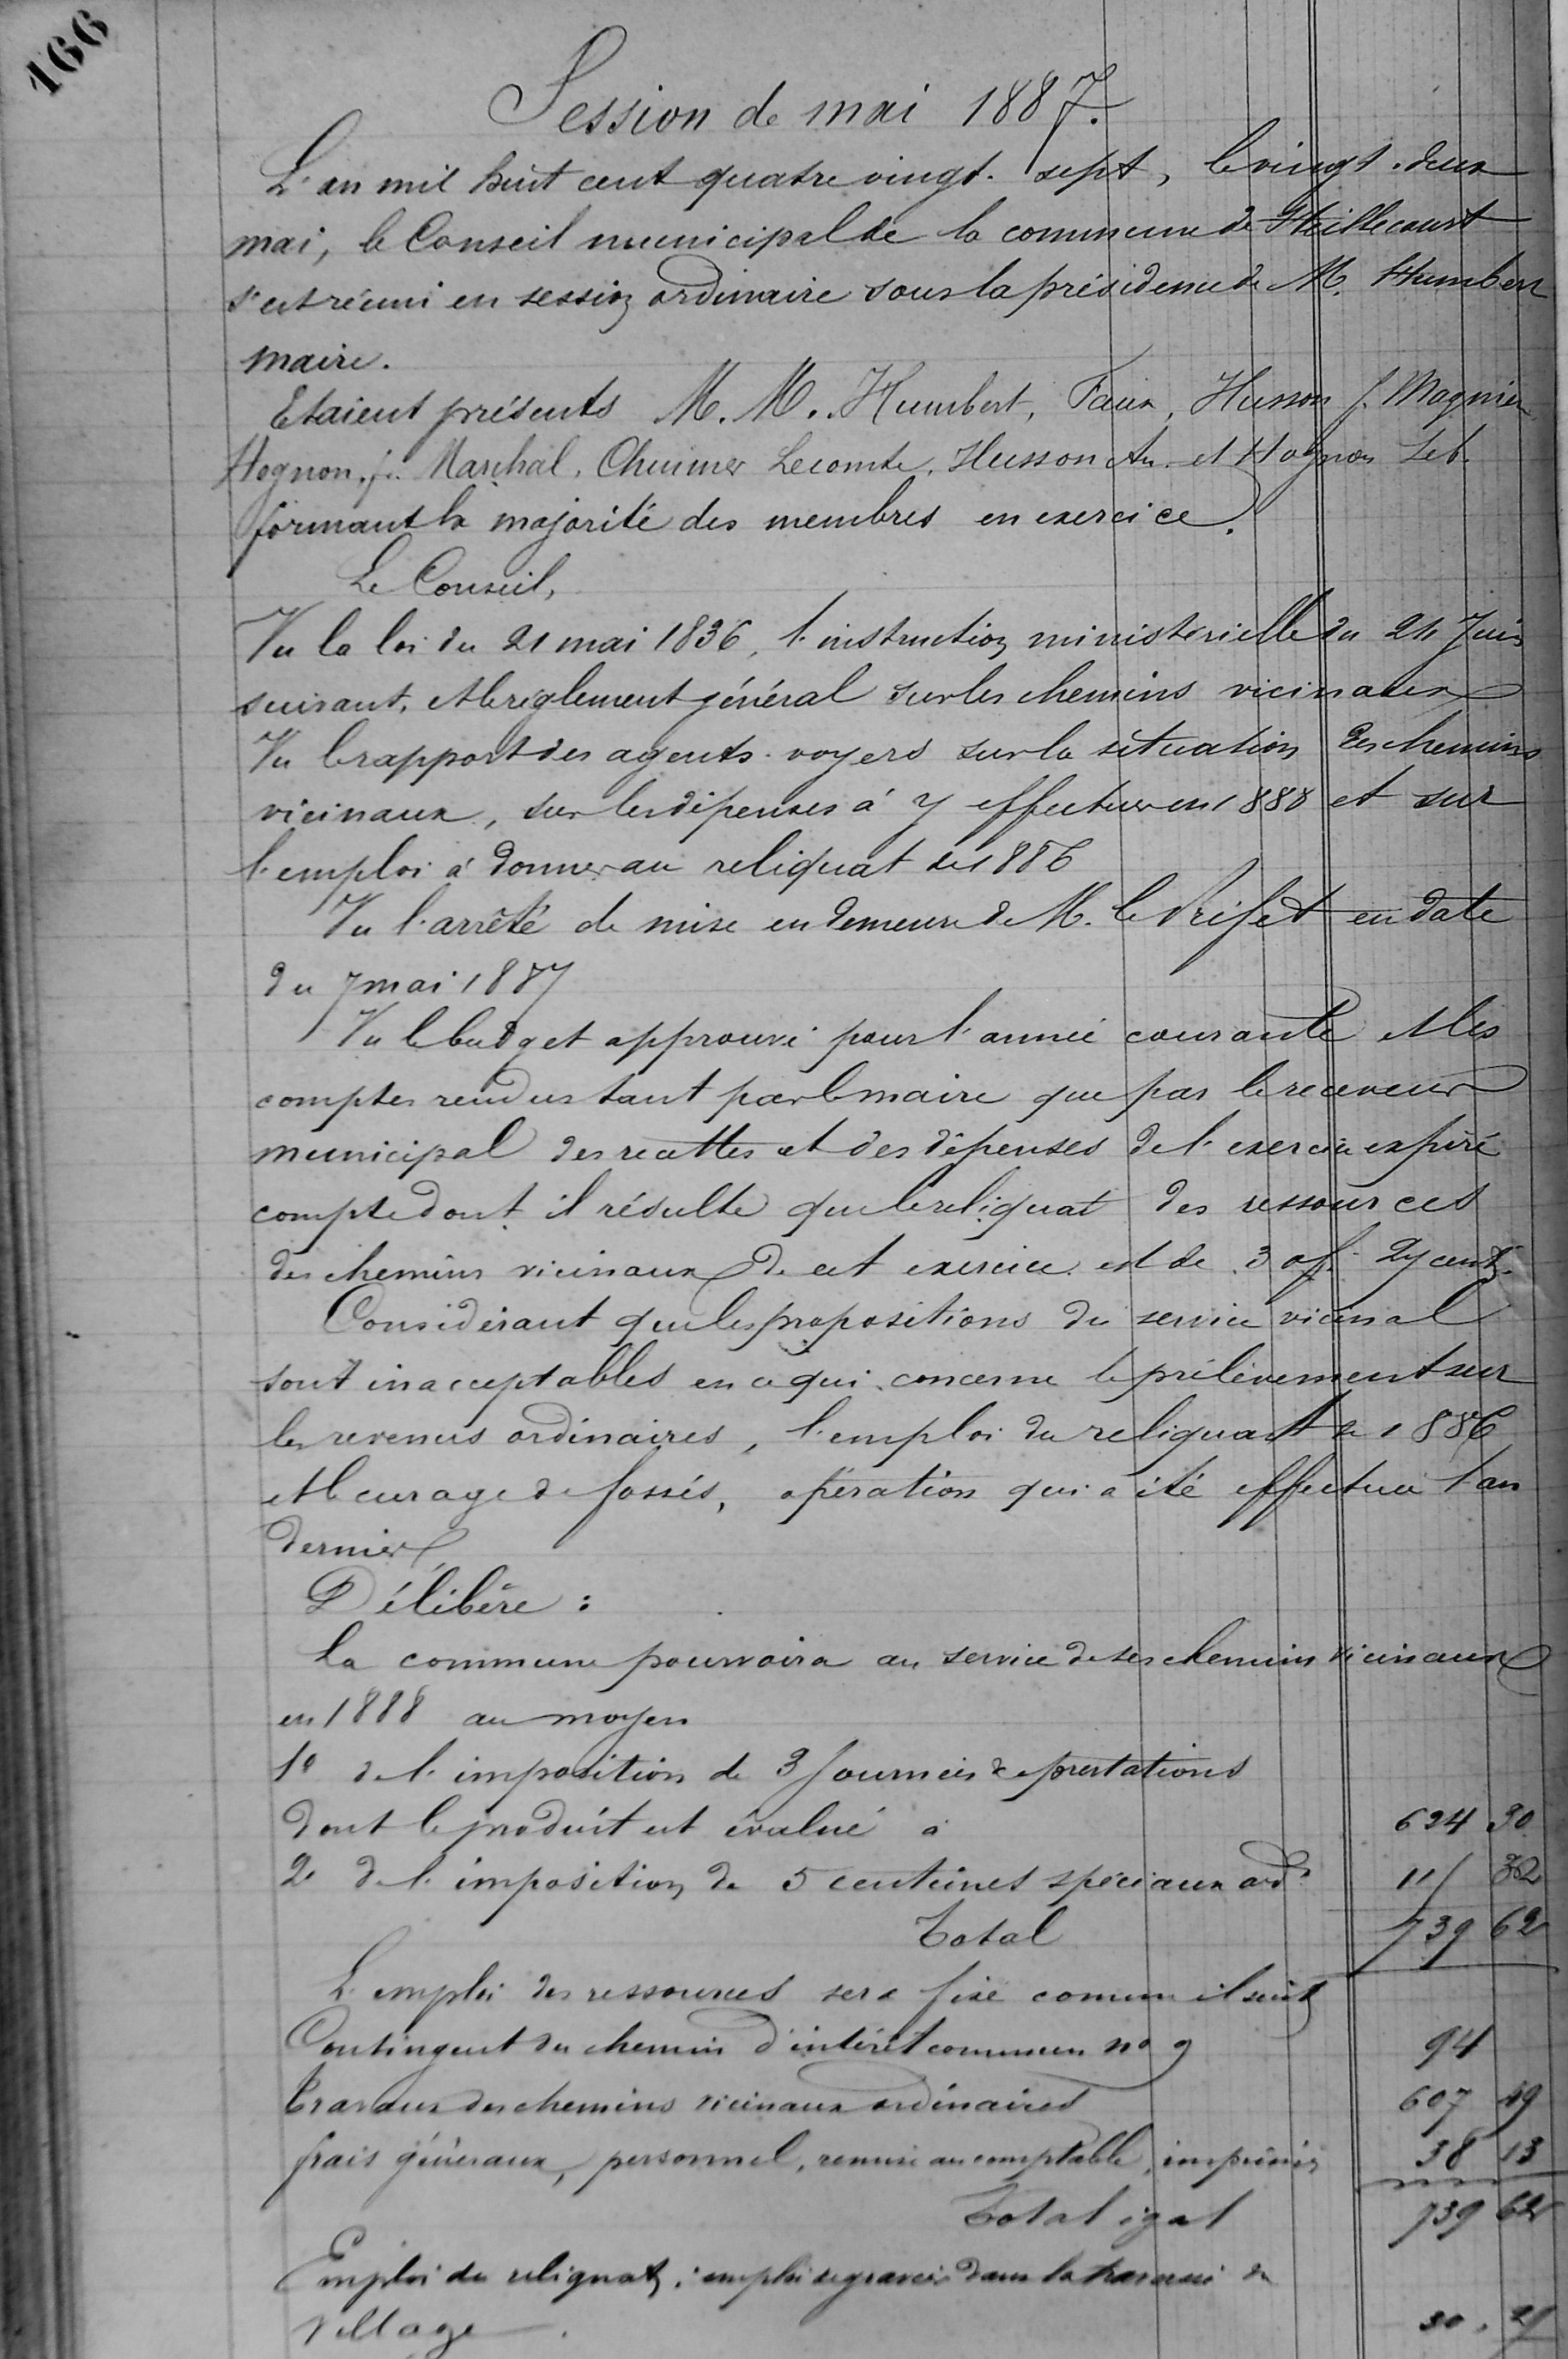 166
Session de mai 1887.
L'an mil huit cent quatre vingt-sept, le vingt-deux
mai, le Conseil municipal de la commune de Heillecourt
s'est réuni en session ordinaire sous la présidence de M. Humbert
maire.
Etaient présents M. M. Humbert, Faux, Husson J. Magnien
Hognon, fs. Marchal, Lecomte, Husson An. et Hognon Seb.
formant la majorité des membres en exercice.
Le Conseil,
Vu la loi du 21 mai 1836, l'instruction ministérielle du 24 Juin
suivant, et le règlement général sur les chemins vicinaux
Vu le rapport des agents-voyers sur la situation des chemins
vicinaux, sur les dépenses à y effectuer en 1888 et sur
l'emploi à donner au reliquat de 1886
Vu l'arrêté de mise en demeure de M. le Préfet en date
du 7 mai 1887
Vu le budget approuvé pour l'année courante et les
comptes rendus tant par le maire que par le receveur
municipal des recettes et des dépenses de l'exercice expiré
compte dont il résulte que le reliquat des ressources
des chemins vicinaux de cet exercice est de 30 f. 27 cent.
Considérant que les propositions du service vicinal
sont inacceptables en ce qui concerne le prélèvement sur
les revenus ordinaires, l'emploi du reliquat de 1886
et le curage de fossés, opération qui a été effectuée l'an
dernier
Délibère :
La commune pourvoira au service de ses chemins vicinaux
en 1888 au moyen
1º de l'imposition de 3 journées de prestations
dont le produit est évalué à 624 30
2º de l'imposition de 5 centimes spéciaux ords 115 32
Total 739 62
L'emploi des ressources sera fixé comme il suit
Contingent du chemin d'intérêt commun no 9 94
Travaux des chemins vicinaux ordinaires 607 49
frais généraux, personnel, remise au comptable, imprimés 38 13
Total égal 739 62
Emploi du reliquat : emploi de gravier dans la traversée du
village. 30. 27